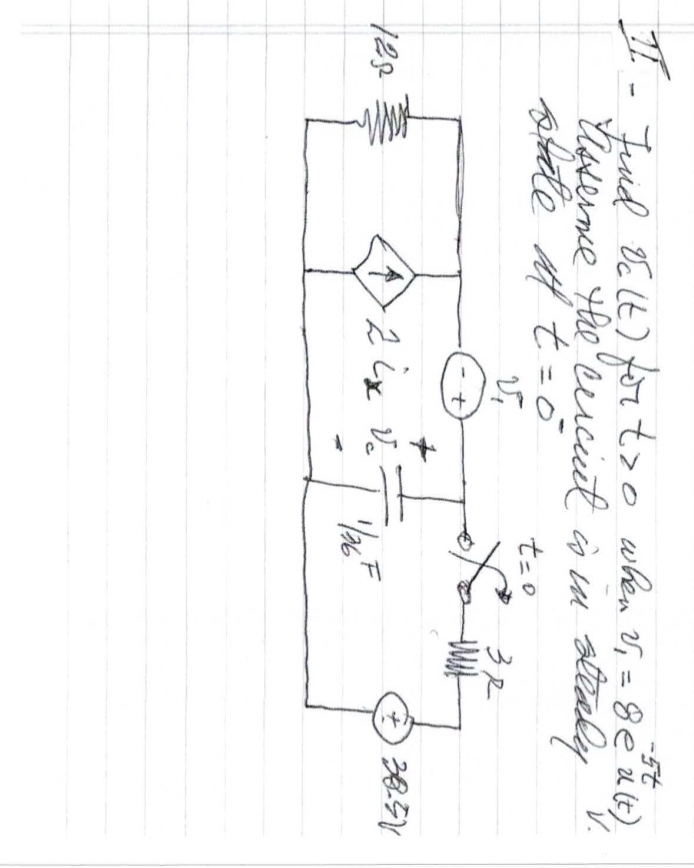 II - Find vc(t) for t>0 when v1 = 8e^-5t u(t) V.
Assume the circuit is in steady
state at t=0-
t=0
v1
- +
3Ω
12Ω
2ix
+
vc
-
1/36 F
+
38.5V